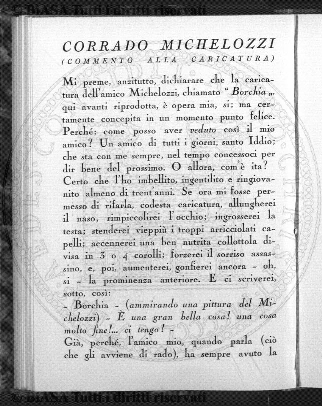 © DIASA Tutti i diritti riservati
CORRADO MICHELOZZI
(COMMENTO ALLA CARICATURA)
Mi preme, anzitutto, dichiarare che la carica-
tura dell'amico Michelozzi, chiamato "Borchia„,
qui avanti riprodotta, è opera mia, sì; ma cer-
tamente concepita in un momento punto felice.
Perchè: come posso aver veduto così il mio
amico? Un amico di tutti i giorni, santo Iddio;
che sta con me sempre, nel tempo concessoci per
dir bene del prossimo. O allora, com'è ita?
Certo che l'ho imbellito, ingentilito e ringiova-
nito almeno di trent'anni. Se ora mi fosse per-
messo di rifarla, codesta caricatura, allungherei
il naso, rimpiccolirei l'occhio; ingrosserei la
testa; stenderei vieppiù i troppi arricciolati ca-
pelli; accennerei una ben nutrita collottola di-
visa in 3 o 4 corolli; forzerei il sorriso assas-
sino, e, poi, aumenterei, gonfierei ancora - oh,
sì - la prominenza anteriore. E ci scriverei,
sotto, così:
- Borchia - (ammirando una pittura del Mi-
chelozzi) - È una gran bella cosa! una cosa
molto fine!... ci tengo! -
Già, perchè, l'amico mio, quando parla (ciò
che gli avviene di rado), ha sempre avuto la
© DIASA Tutti i diritti riservati